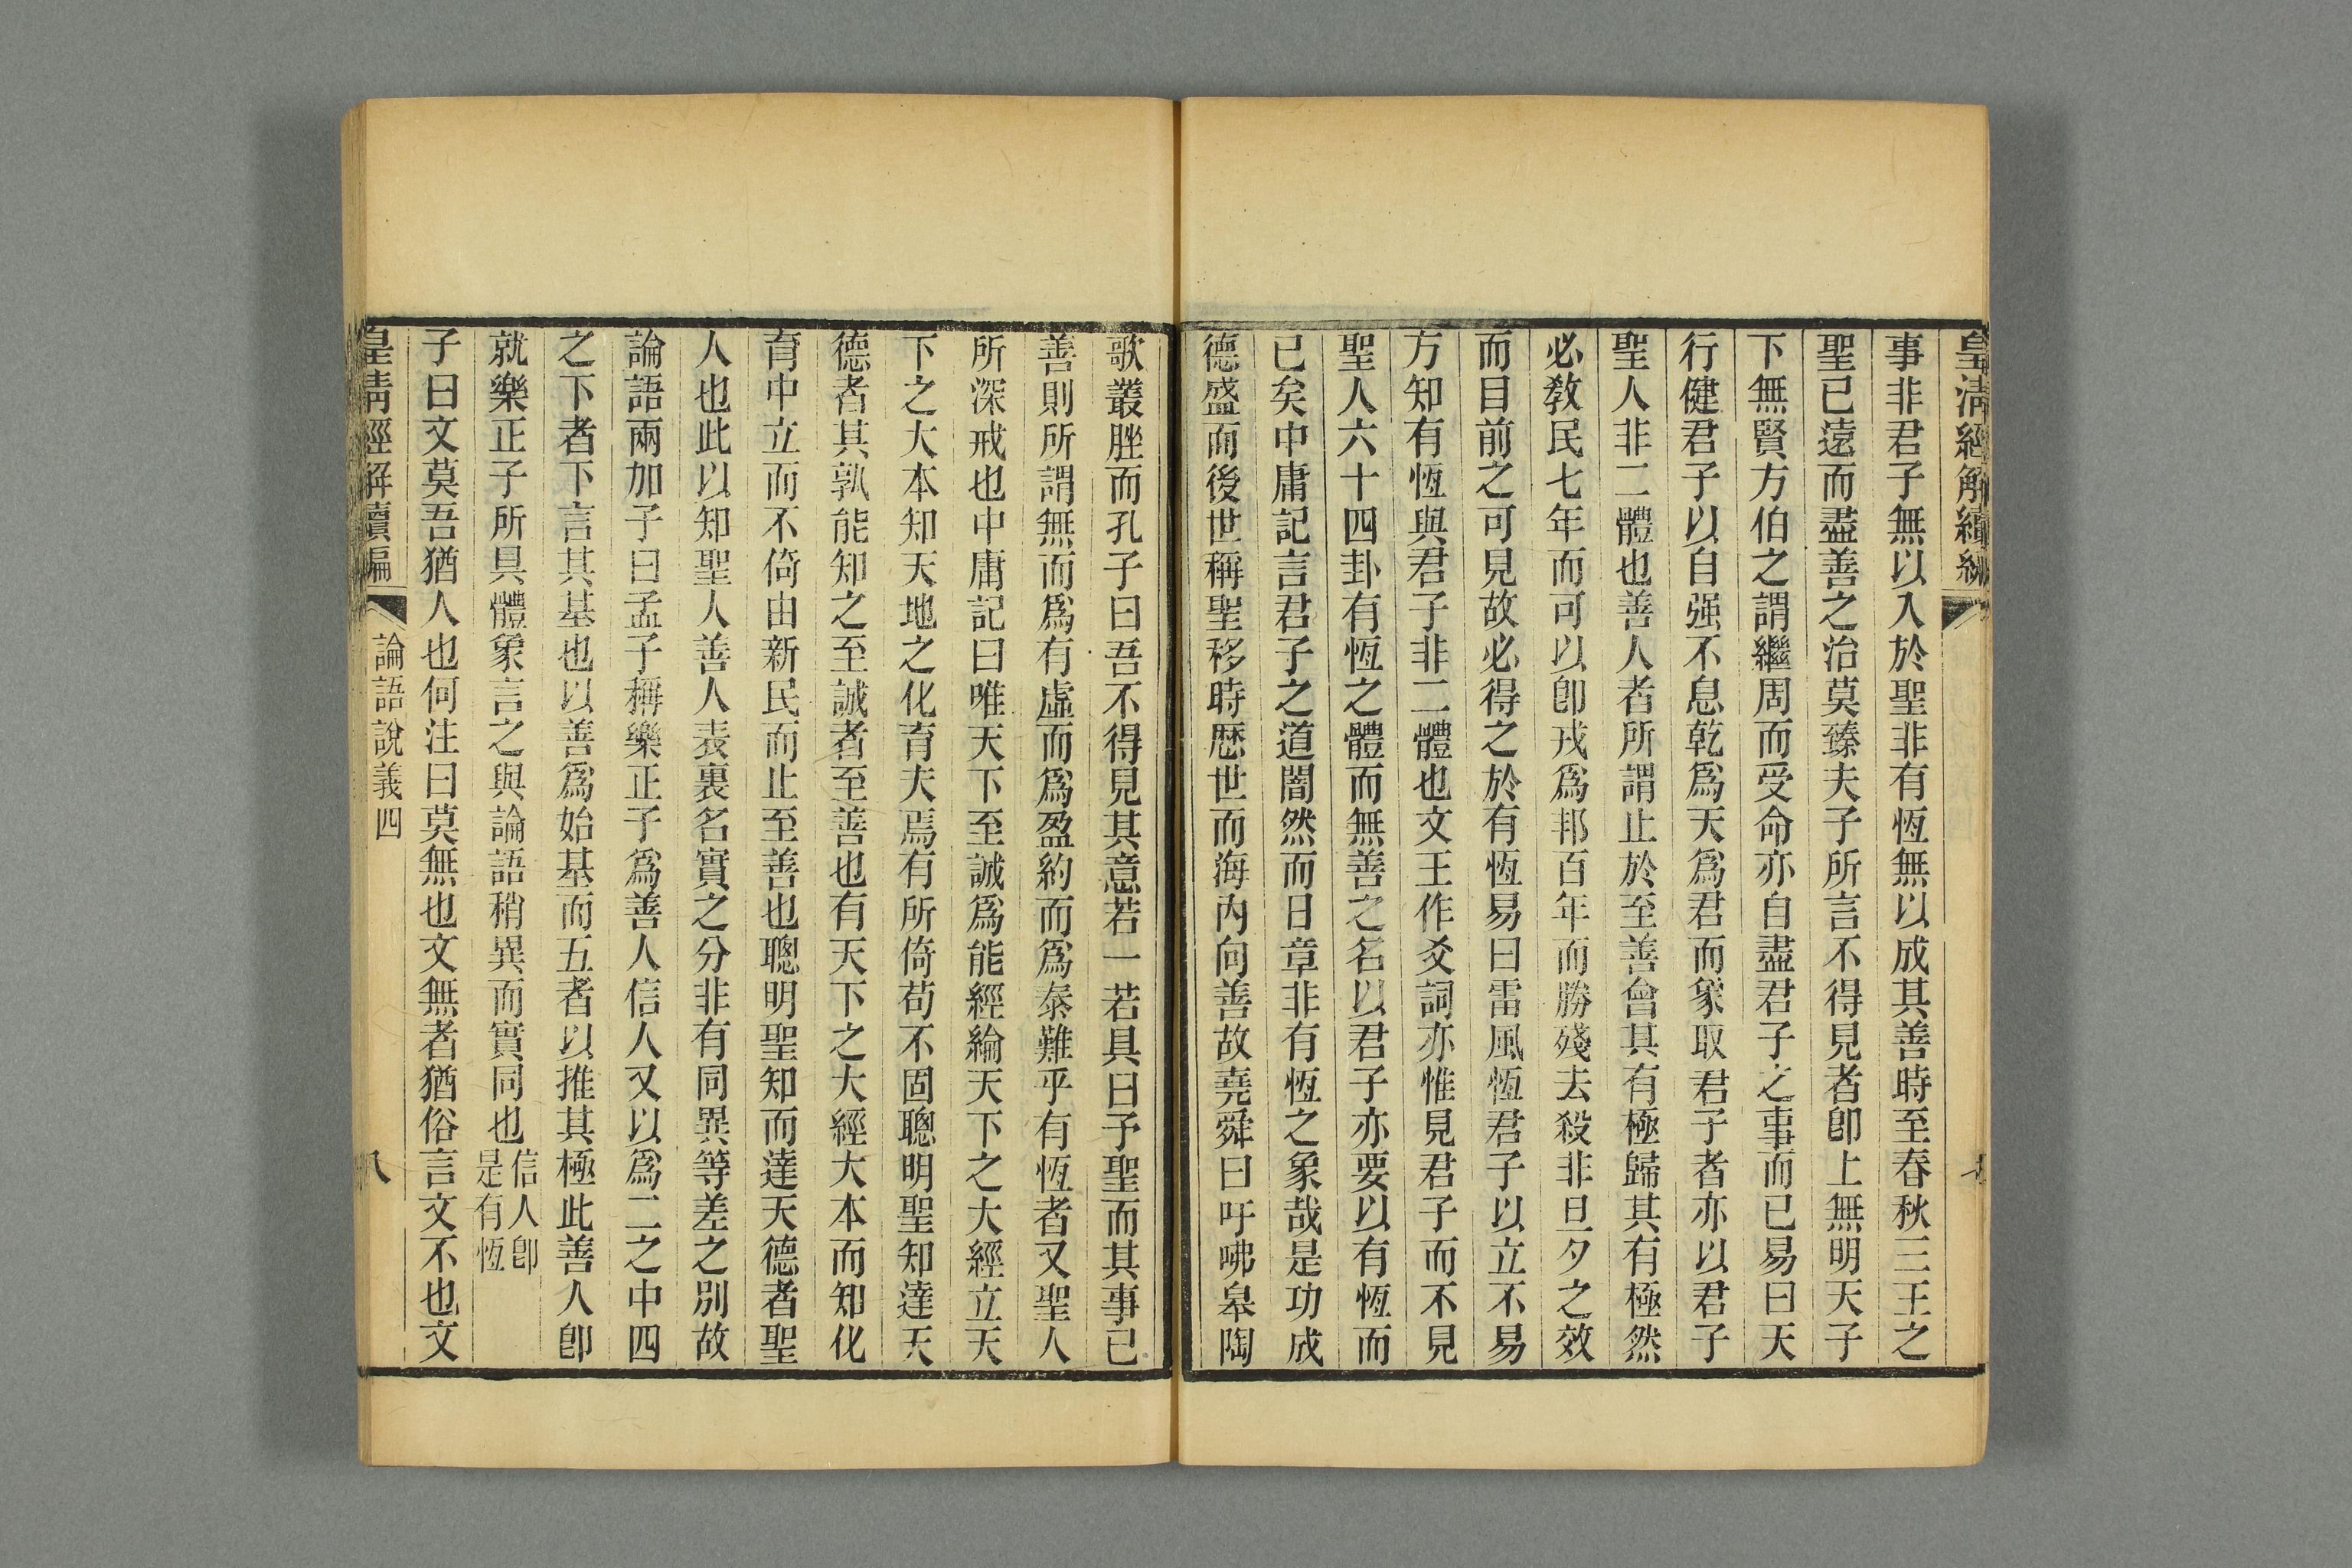 皇清經解續編
事非君子無以入於聖非有恆無以成其善時至春秋三王之
聖已遠而盡善之治莫臻夫子所言不得見者卽上無明天子
下無賢方伯之謂繼周而受命亦自盡君子之事而已易曰天
行健君子以自强不息乾爲天爲君而象取君子者亦以君子
聖人非二體也善人者所謂止於至善會其有極歸其有極然
必敎民七年而可以卽戎爲邦百年而勝殘去殺非旦夕之效
而目前之可見故必得之於有恆易曰雷風恆君子以立不易
方知有恆與君子非二體也文王作爻詞亦惟見君子而不見
聖人六十四卦有恆之體而無善之名以君子亦要以有恆而
已矣中庸記言君子之道闇然而日章非有恆之象哉是功成
德盛而後世稱聖移時歷世而海內向善故堯舜曰吁咈皋陶
歌叢脞而孔子曰吾不得見其意若一若具曰予聖而其事已
善則所謂無而爲有虛而爲盈約而爲泰難乎有恆者又聖人
所深戒也中庸記曰唯天下至誠爲能經綸天下之大經立天
下之大本知天地之化育夫焉有所倚苟不固聰明聖知達天
德者其孰能知之至誠者至善也有天下之大經大本而知化
育中立而不倚由新民而止至善也聰明聖知而達天德者聖
人也此以知聖人善人表裏名實之分非有同異等差之別故
論語兩加子曰孟子稱樂正子爲善人信人又以爲二之中四
之下者下言其基也以善爲始基而五者以推其極此善人卽
就樂正子所具體象言之與論語稍異而實同也信人卽
是有恆
子曰文莫吾猶人也何注曰莫無也文無者猶俗言文不也文
皇清經解續編
論語說義四
八